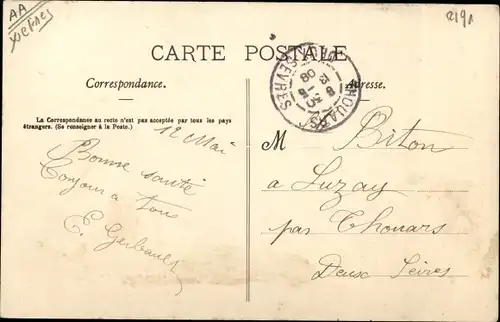 AA
2191
CARTE POSTALE
Correspondance.
Adresse.
La Correspondance au recto n'est pas acceptée par tous les pays
étrangers. (Se renseigner à la Poste.)
THOUARS
8 30
13 -5
08
SEVRES
12 Mai
Bonne santé
Bonjour a tous
E. Gerbault
M Biton
a Luzay
par Thouars
Deux Sèvres